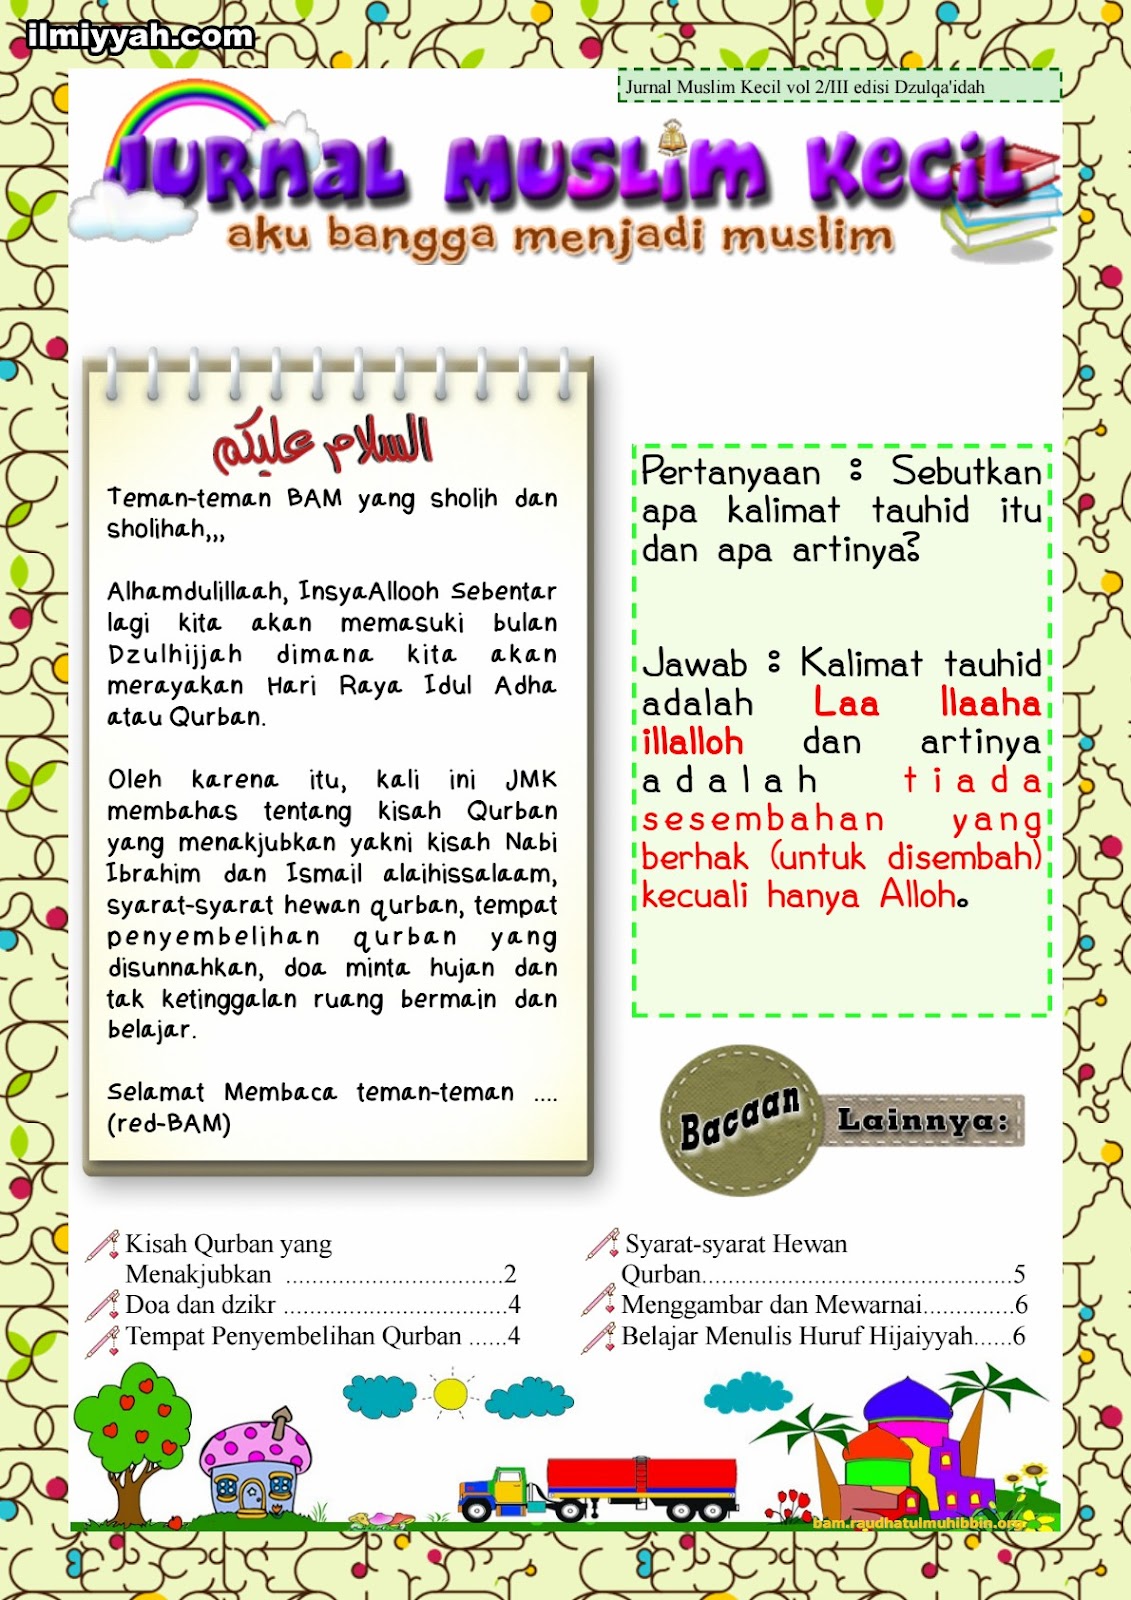 ilmiyyah.com
Jurnal Muslim Kecil vol 2/III edisi Dzulqa'idah
Jurnal Muslim Kecil
aku bangga menjadi muslim
السلام عليكم
Teman-teman BAM yang sholih dan
sholihah,,,
Alhamdulillaah, InsyaAllooh Sebentar
lagi kita akan memasuki bulan
Dzulhijjah dimana kita akan
merayakan Hari Raya Idul Adha
atau Qurban.
Oleh karena itu, kali ini JMK
membahas tentang kisah Qurban
yang menakjubkan yakni kisah Nabi
Ibrahim dan Ismail alaihissalaam,
syarat-syarat hewan qurban, tempat
penyembelihan qurban yang
disunnahkan, doa minta hujan dan
tak ketinggalan ruang bermain dan
belajar.
Selamat Membaca teman-teman ....
(red-BAM)
Pertanyaan : Sebutkan
apa kalimat tauhid itu
dan apa artinya?
Jawab : Kalimat tauhid
adalah Laa Ilaaha
illalloh dan artinya
adalah tiada
sesembahan yang
berhak (untuk disembah)
kecuali hanya Alloh.
Bacaan Lainnya:
Kisah Qurban yang
Menakjubkan .................................2
Doa dan dzikr ..................................4
Tempat Penyembelihan Qurban ......4
Syarat-syarat Hewan
Qurban...............................................5
Menggambar dan Mewarnai..............6
Belajar Menulis Huruf Hijaiyyah......6
bam.raudhatulmuhibbin.org